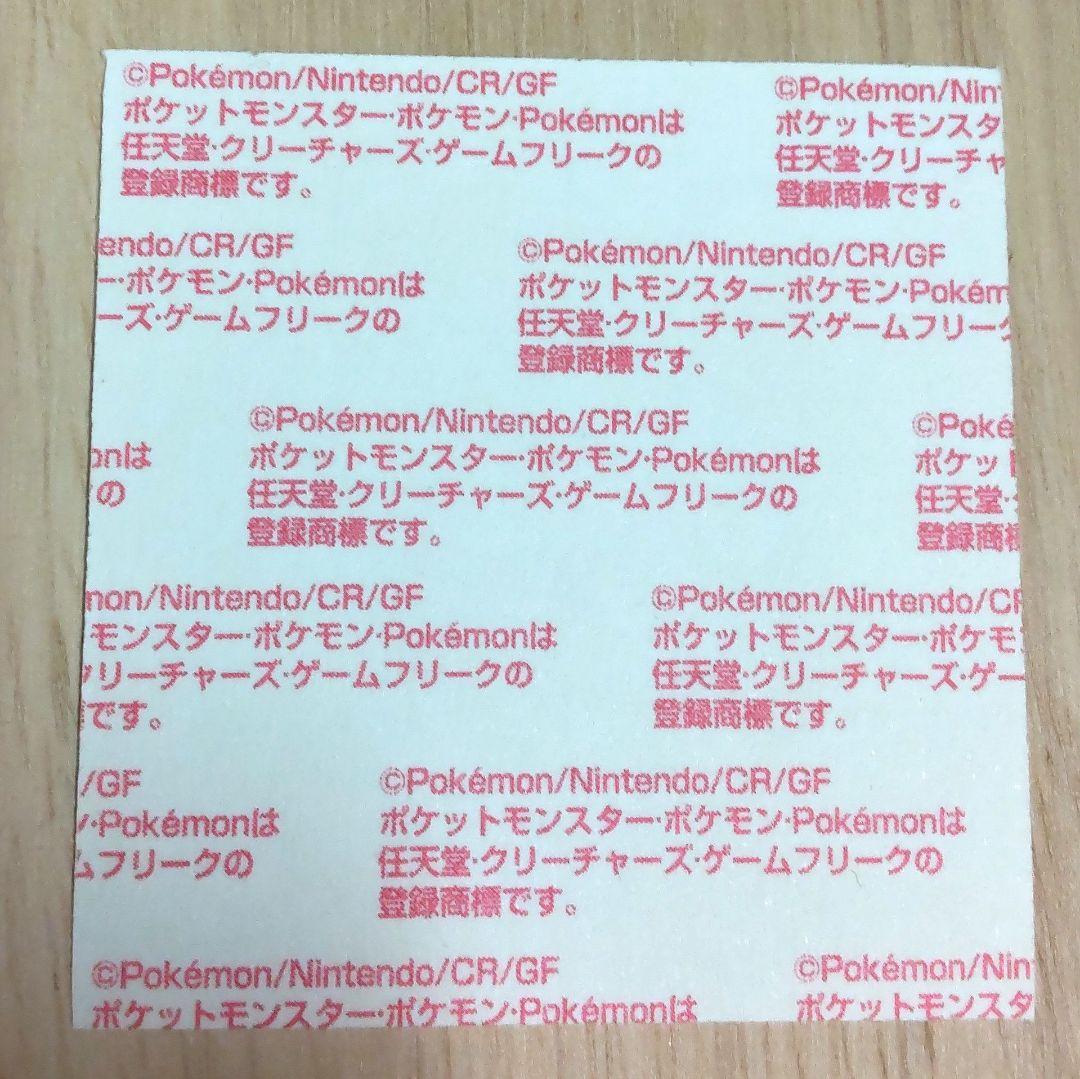 ©Pokémon/Nintendo/CR/GF
ポケットモンスター·ポケモン·Pokémonは
任天堂·クリーチャーズ·ゲームフリークの
登録商標です。
©Pokémon/Nin
ポケットモンスタ
任天堂·クリーチャ
登録商標です。
endo/CR/GF
ー·ポケモン·Pokémonは
ーズ·ゲームフリークの
©Pokémon/Nintendo/CR/GF
ポケットモンスター·ポケモン·Pokém
任天堂·クリーチャーズ·ゲームフリーク
登録商標です。
©Pokémon/Nintendo/CR/GF
ポケットモンスター·ポケモン·Pokémonは
任天堂·クリーチャーズ·ゲームフリークの
登録商標です。
onは
の
©Poké
ポケッ
任天堂·
登録商標
mon/Nintendo/CR/GF
モンスター·ポケモン·Pokémonは
クリーチャーズ·ゲームフリークの
です。
©Pokémon/Nintendo/CR
ポケットモンスター·ポケモ
任天堂·クリーチャーズ·ゲー
登録商標です。
/GF
ン·Pokémonは
ムフリークの
©Pokémon/Nintendo/CR/GF
ポケットモンスター·ポケモン·Pokémonは
任天堂·クリーチャーズ·ゲームフリークの
登録商標です。
©Pokémon/Nintendo/CR/GF
ポケットモンスター·ポケモン·Pokémonは
©Pokémon/Nin
ポケットモンスタ